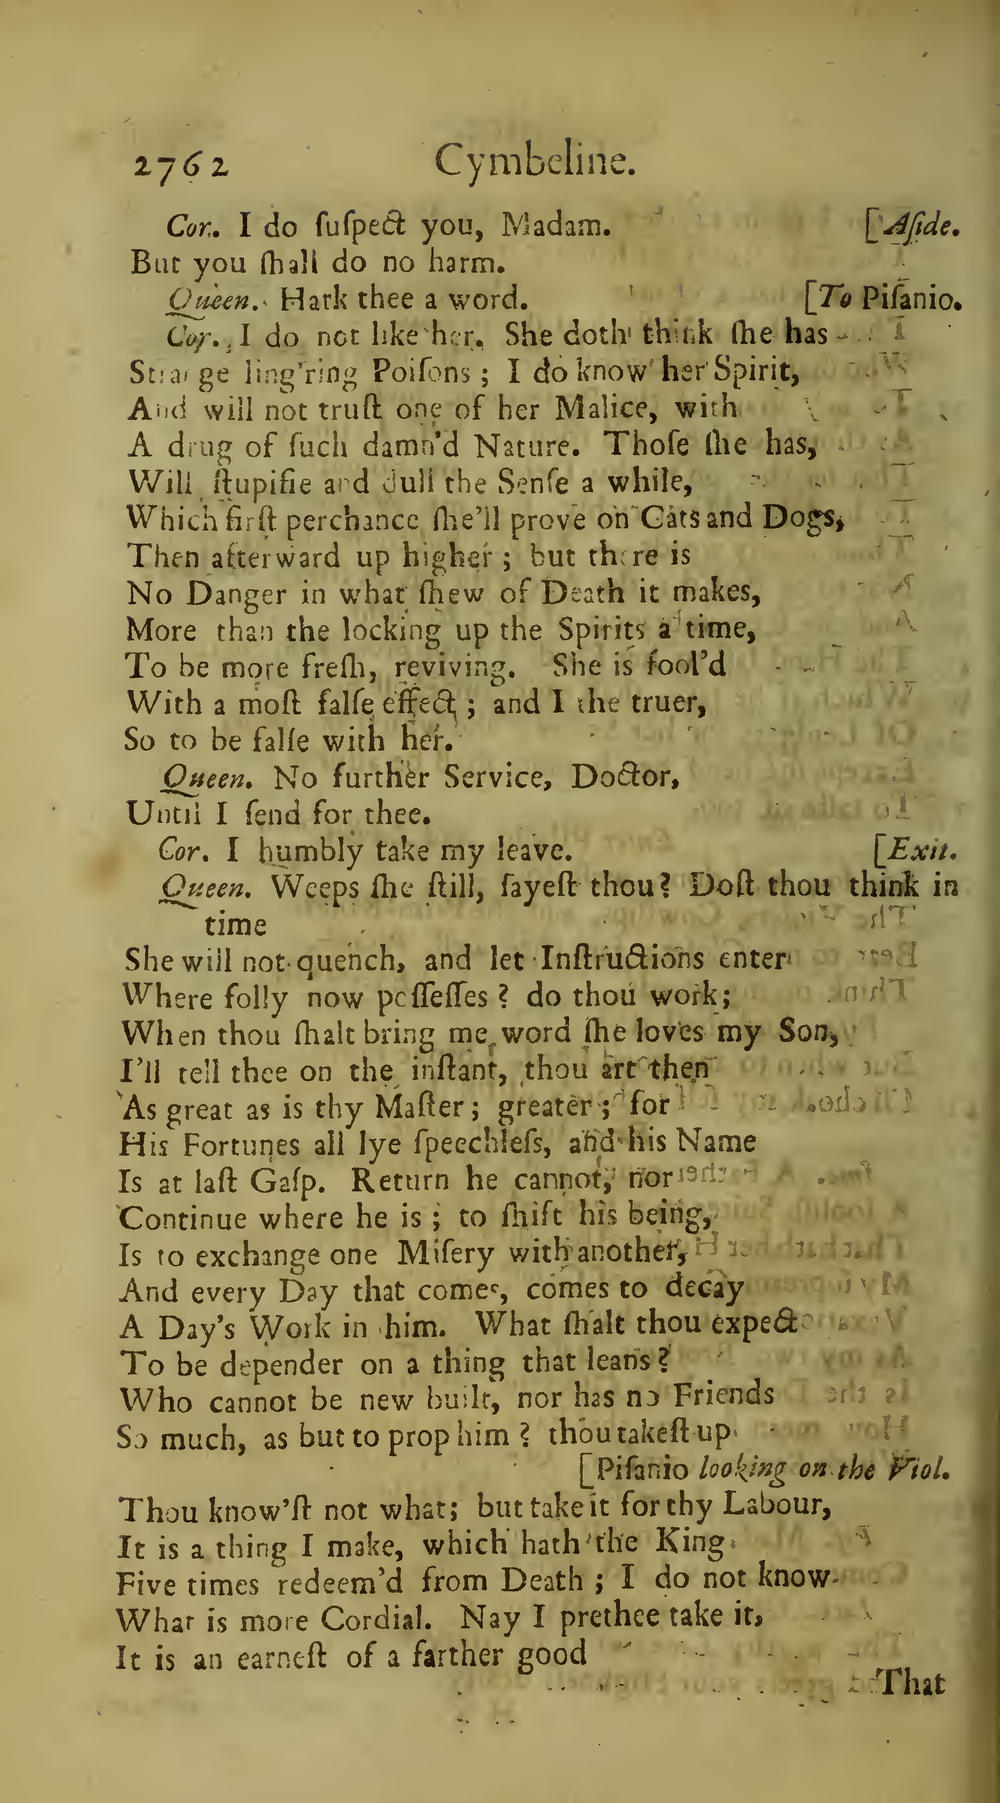 2762 Cymbeline.
Cor. I do ſuſpect you, Madam. [Aſide.
But you ſhall do no harm.
Queen. Hark thee a word. [To Piſanio.
Cor. I do not like her. She doth think ſhe has
Strange ling'ring Poiſons; I do know her Spirit,
And will not truſt one of her Malice, with
A drug of ſuch damn'd Nature. Thoſe ſhe has,
Will ſtupifie and dull the Senſe a while,
Which firſt perchance ſhe'll prove on Cats and Dogs,
Then afterward up higher; but there is
No Danger in what ſhew of Death it makes,
More than the locking up the Spirits a time,
To be more freſh, reviving. She is fool'd
With a moſt falſe effect; and I the truer,
So to be falſe with her.
Queen. No further Service, Doctor,
Until I ſend for thee.
Cor. I humbly take my leave. [Exit.
Queen. Weeps ſhe ſtill, ſayeſt thou? Doſt thou think in
time
She will not quench, and let Inſtructions enter
Where folly now poſſeſſes? do thou work;
When thou ſhalt bring me word ſhe loves my Son,
I'll tell thee on the inſtant, thou art then
As great as is thy Maſter; greater; for
His Fortunes all lye ſpeechleſs, and his Name
Is at laſt Gaſp. Return he cannot, nor
Continue where he is; to ſhift his being,
Is to exchange one Miſery with another,
And every Day that comes, comes to decay
A Day's Work in him. What ſhalt thou expect
To be depender on a thing that leans?
Who cannot be new built, nor has no Friends
So much, as but to prop him? thou takeſt up
[Piſanio looking on the Viol.
Thou know'ſt not what; but take it for thy Labour,
It is a thing I make, which hath the King
Five times redeem'd from Death; I do not know
What is more Cordial. Nay I prethee take it,
It is an earneſt of a farther good
That